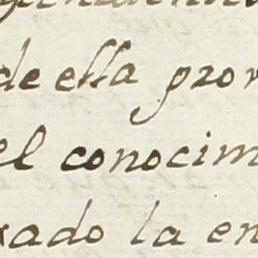 de ella prov
el conocim
xado la en